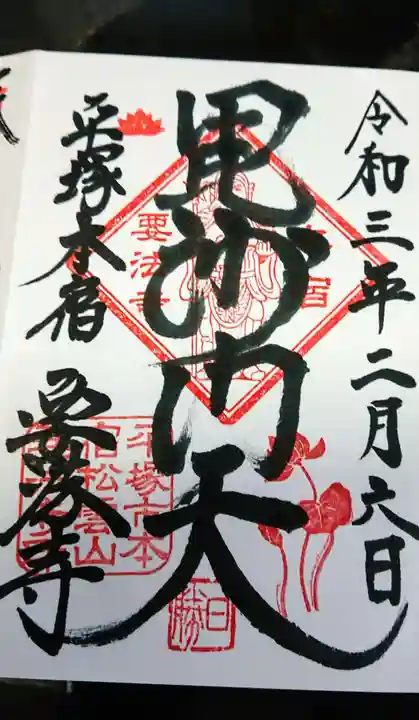 令和三年二月六日
毘沙門天
平塚本宿
要法寺
本宿
要法寺
平塚市本
宿松雲山
要法寺